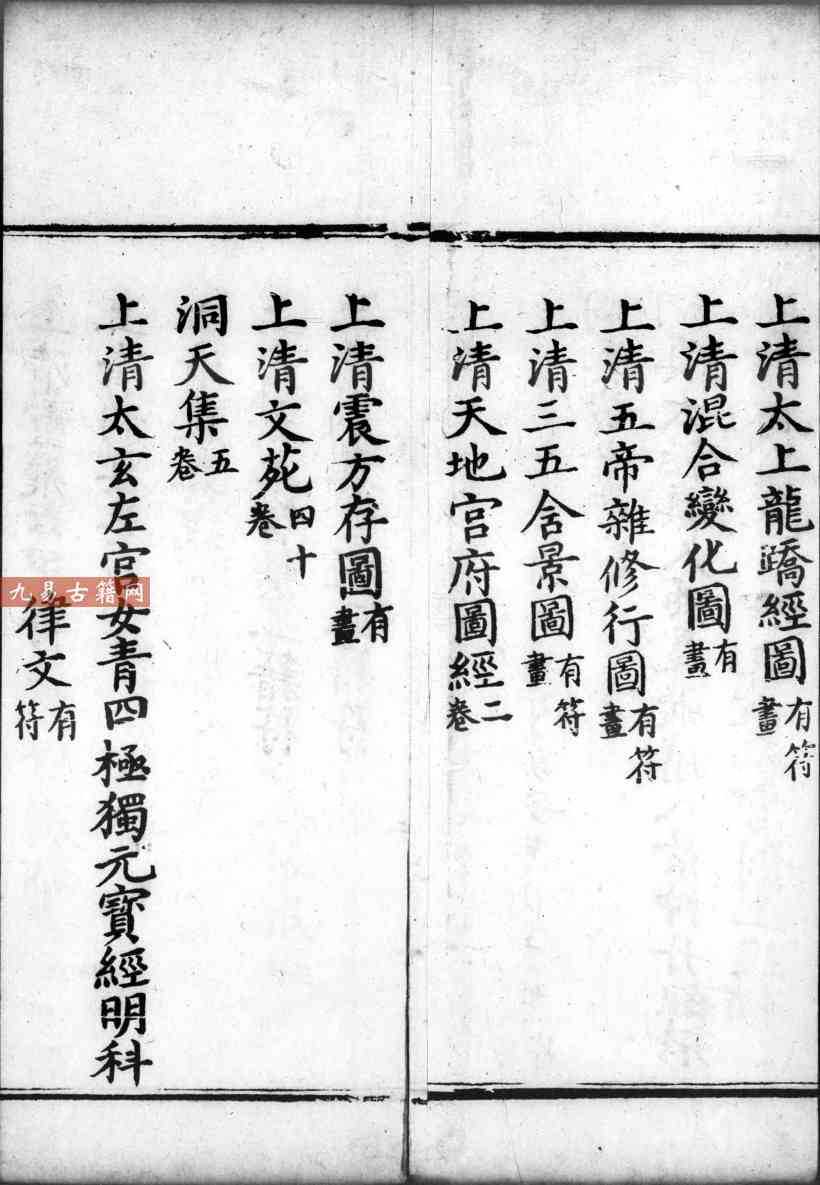 上清太上龍蹻經圖有符畫
上清混合變化圖有畫
上清五帝雜修行圖有符畫
上清三五含景圖有符畫
上清天地宮府圖經二卷
上清震方存圖有畫
上清文苑四十卷
洞天集五卷
上清太玄左官女青四極獨元寶經明科
律文有符
九易古籍网